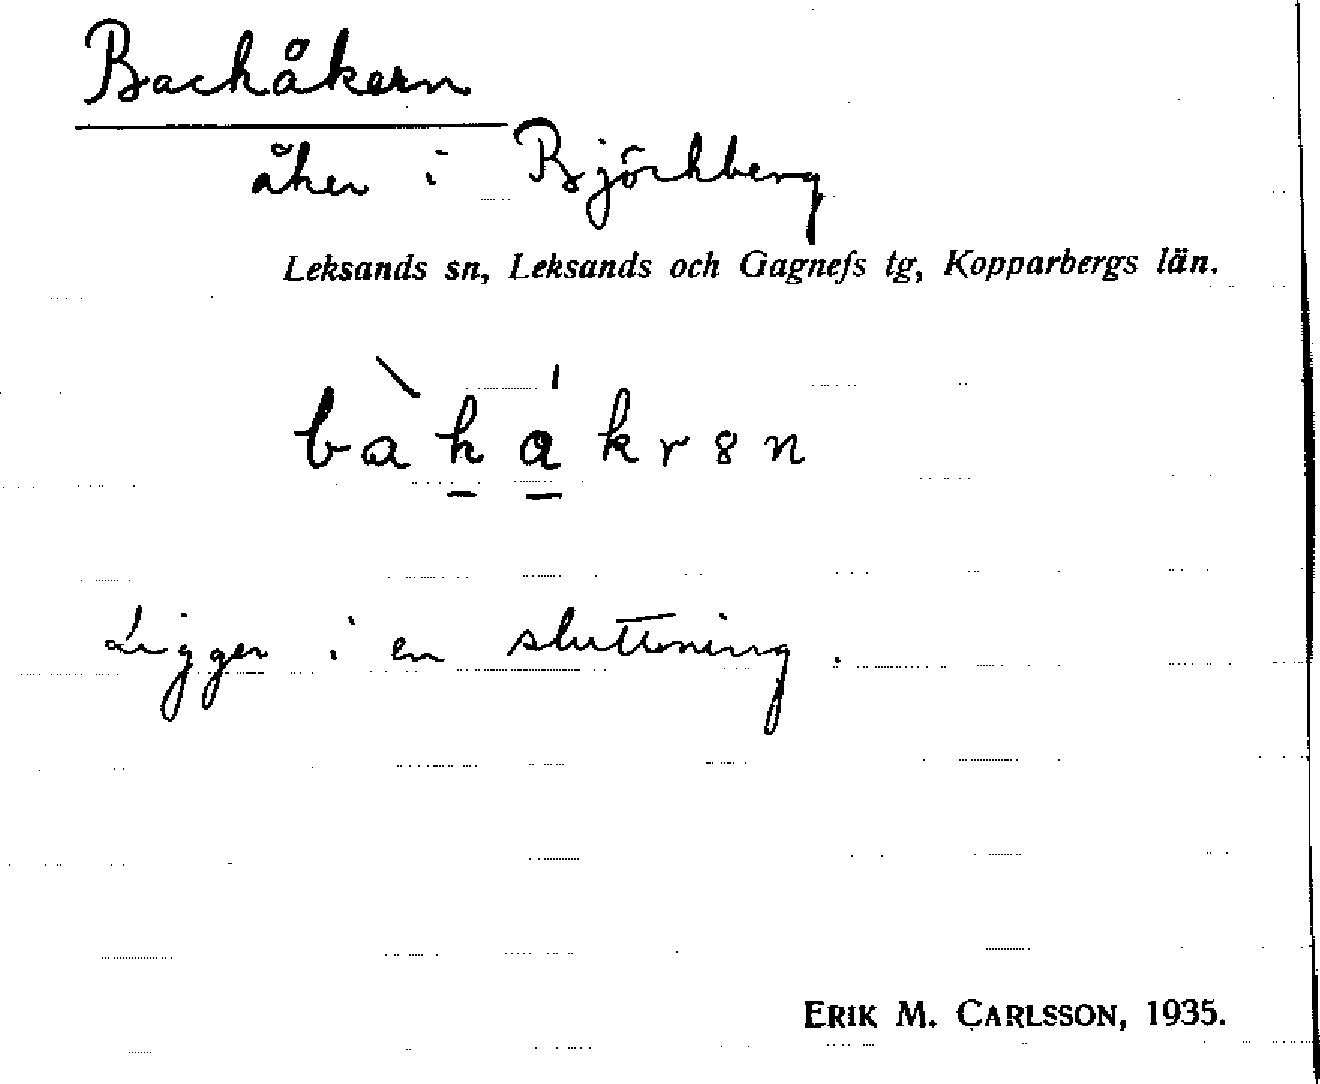 Backåkern
åker i Björkberg
Leksands sn, Leksands och Gagnefs tg, Kopparbergs län.
Ligger i en sluttning.
ERIK M. CARLSSON, 1935.